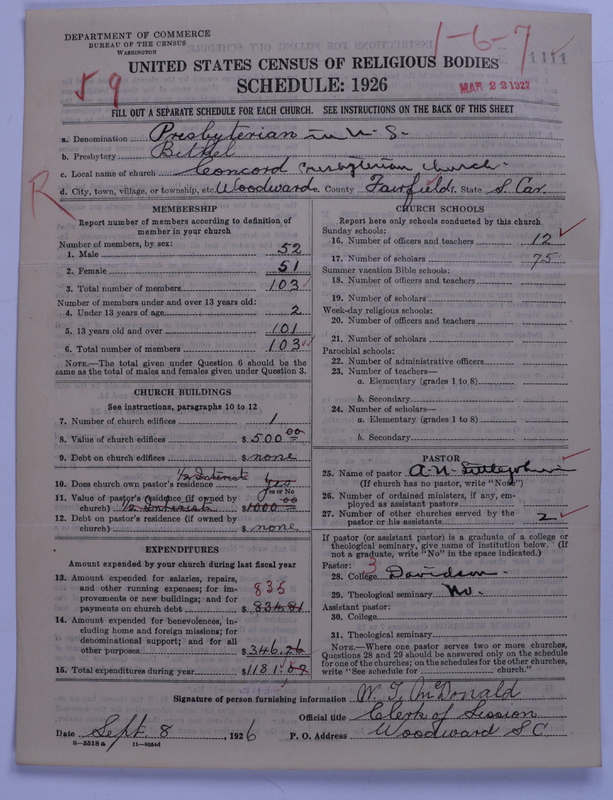 DEPARTMENT OF COMMERCE
BUREAU OF THE CENSUS
WASHINGTON
1-6-7
1111
UNITED STATES CENSUS OF RELIGIOUS BODIES
59
SCHEDULE: 1926
MAR 22 1927
FILL OUT A SEPARATE SCHEDULE FOR EACH CHURCH. SEE INSTRUCTIONS ON THE BACK OF THIS SHEET
a. Denomination Presbyterian in U. S.
b. Presbytery Bethel
c. Local name of church Concord Presbyterian Church
R
d. City, town, village, or township, etc. Woodward e. County Fairfield f. State S. Car.
MEMBERSHIP
Report number of members according to definition of
member in your church
Number of members, by sex:
1. Male 52
2. Female 51
3. Total number of members 103
Number of members under and over 13 years old:
4. Under 13 years of age 2
5. 13 years old and over 101
6. Total number of members 103
NOTE.—The total given under Question 6 should be the
same as the total of males and females given under Question 3.
CHURCH BUILDINGS
See instructions, paragraphs 10 to 12
7. Number of church edifices 1
8. Value of church edifices $ 500 00
9. Debt on church edifices $ none
1/2 Interest
10. Does church own pastor's residence yes
Yes or No
11. Value of pastor's residence (if owned by
church) 1/2 Interest $ 1000 00
12. Debt on pastor's residence (if owned by
church) $ none
EXPENDITURES
Amount expended by your church during last fiscal year
13. Amount expended for salaries, repairs,
and other running expenses; for im-
provements or new buildings; and for
payments on church debt $ 834.81
835
14. Amount expended for benevolences, in-
cluding home and foreign missions; for
denominational support; and for all
other purposes $ 346.26
15. Total expenditures during year $ 1181.07
CHURCH SCHOOLS
Report here only schools conducted by this church
Sunday schools:
16. Number of officers and teachers 12
17. Number of scholars 75
Summer vacation Bible schools:
18. Number of officers and teachers
19. Number of scholars
Week-day religious schools:
20. Number of officers and teachers
21. Number of scholars
Parochial schools:
22. Number of administrative officers
23. Number of teachers—
a. Elementary (grades 1 to 8)
b. Secondary
24. Number of scholars—
a. Elementary (grades 1 to 8)
b. Secondary
PASTOR
25. Name of pastor A. N. Littlejohn
(If church has no pastor, write "No")
26. Number of ordained ministers, if any, em-
ployed as assistant pastors
27. Number of other churches served by the
pastor or his assistants 2
If pastor (or assistant pastor) is a graduate of a college or
theological seminary, give name of institution below. (If
not a graduate, write "No" in the space indicated.)
Pastor: 3
28. College Davidson
29. Theological seminary No.
Assistant pastor:
30. College
31. Theological seminary
NOTE.—Where one pastor serves two or more churches,
Questions 28 and 29 should be answered only on the schedule
for one of the churches; on the schedules for the other churches,
write "See schedule for church."
Signature of person furnishing information W. T. McDonald
Official title Clerk of Session
Date Sept. 8, 1926 P. O. Address Woodward S C
8-5518 a 11-9034d